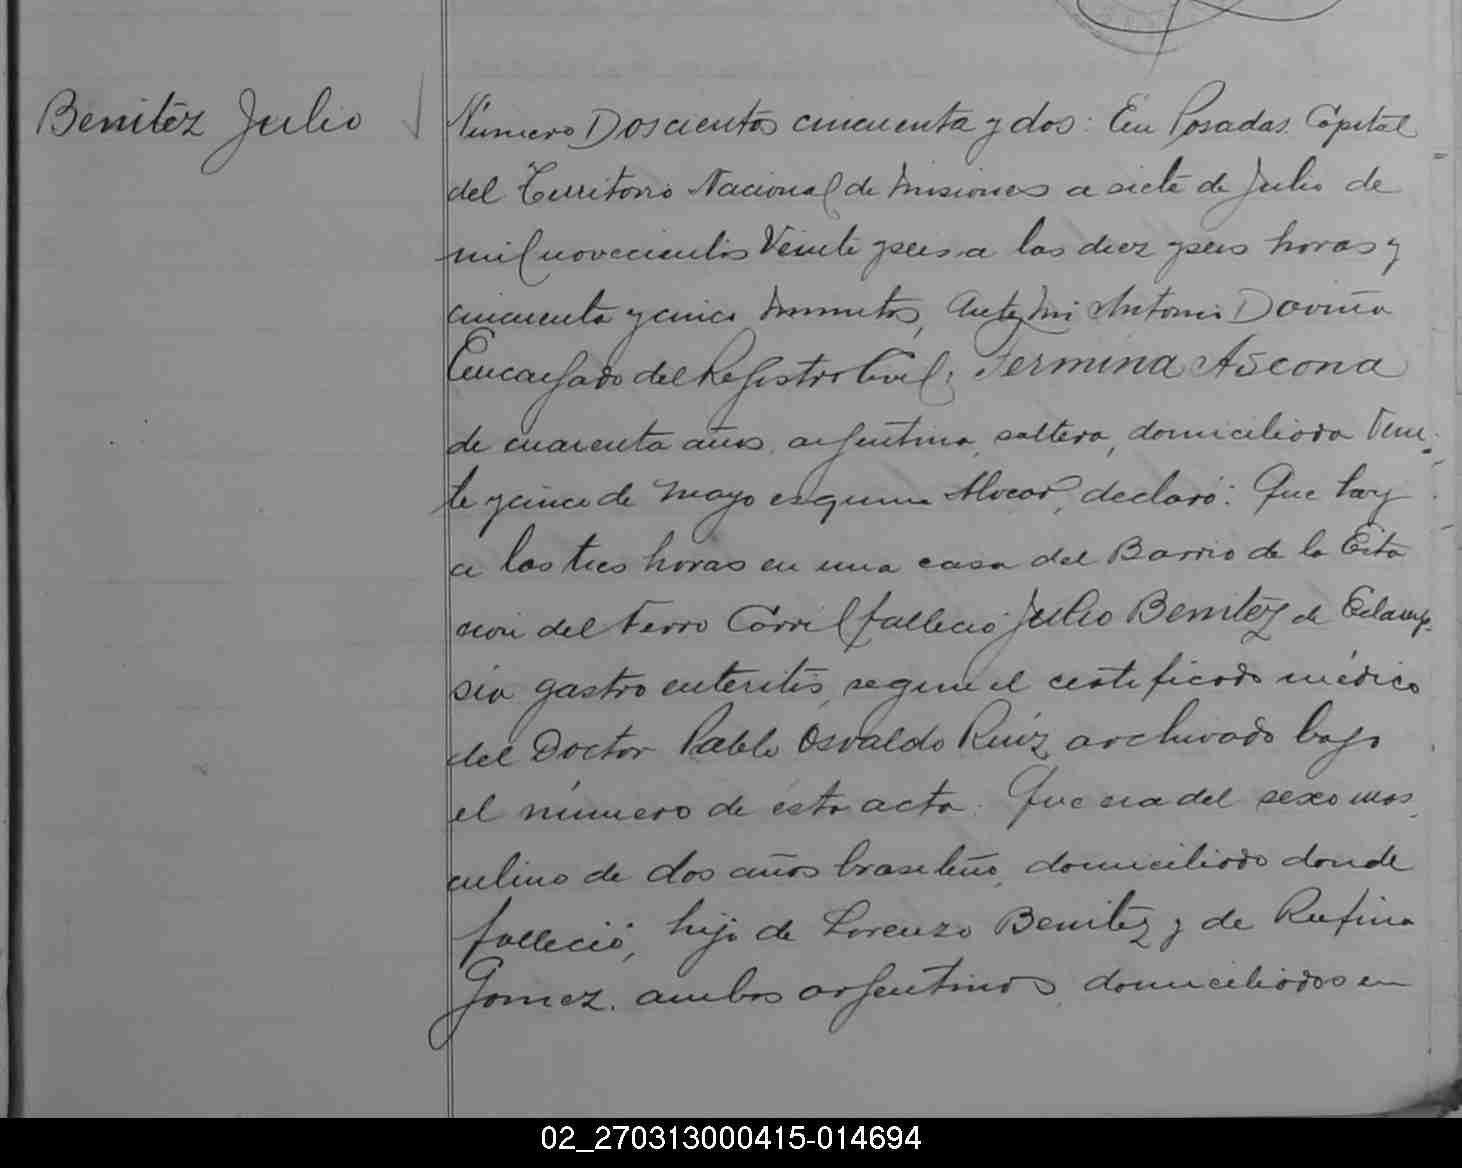 Benitez Julio
Número Doscientos cincuenta y dos: En Posadas Capital
del Territorio Nacional de Misiones a siete de Julio de
mil novecientos Veinte y seis a las diez y seis horas y
cincuenta y cinco minutos, Ante mi Antonio Doviña
Encargado del Registro Civil; Fermina Ascona
de cuarenta años, argentina, soltera, domiciliada Vein-
te y cinco de Mayo esquina Alvear, declaró: Que hoy
a las tres horas en una casa del Barrio de la Esta
cion del Ferro Carril falleció Julio Benitez de Eclamp-
sia gastro enteritis, segun el certificado médico
del Doctor Pablo Osvaldo Ruiz archivado bajo
el número de esta acta. Que era del sexo mas-
culino de dos años brasileño, domiciliado donde
falleció, hijo de Lorenzo Benitez y de Rufina
Gomez, ambos argentinos, domiciliados en
02_270313000415-014694